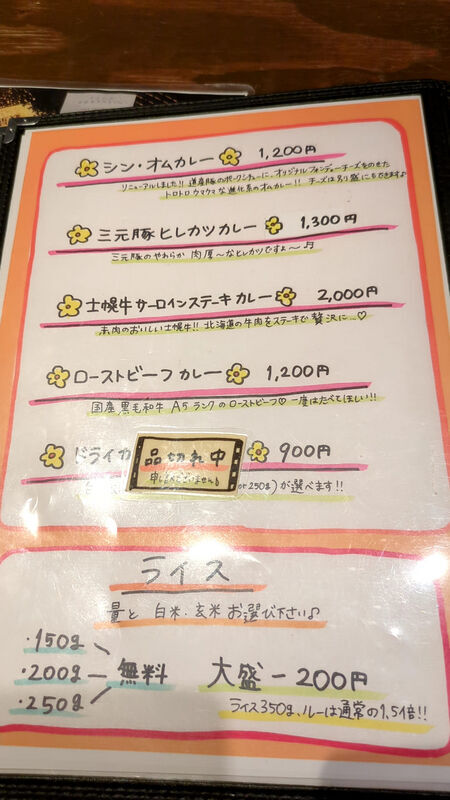 シン・オムカレー 1,200円
リニューアルしました!! 道産豚のポークシチューに、オリジナルフォンデューチーズをのせた
トロトロウマウマな進化系のオムカレー!! チーズは別盛にもできますよ
三元豚ヒレカツカレー 1,300円
三元豚のやわらか 肉厚〜なヒレカツですよ〜♬
士幌牛サーロインステーキカレー 2,000円
赤肉のおいしい士幌牛!! 北海道の牛肉をステーキで贅沢に…♡
ローストビーフカレー 1,200円
国産黒毛和牛 A5ランクのローストビーフ♡ 一度はたべてほしい!!
ドライカ 900円
品切れ中
申しわけございません
250g)が選べます!!
ライス
量と 白米・玄米 お選び下さい♪
・150g
・200g 無料 大盛-200円
・250g
ライス350g、ルーは通常の1.5倍!!